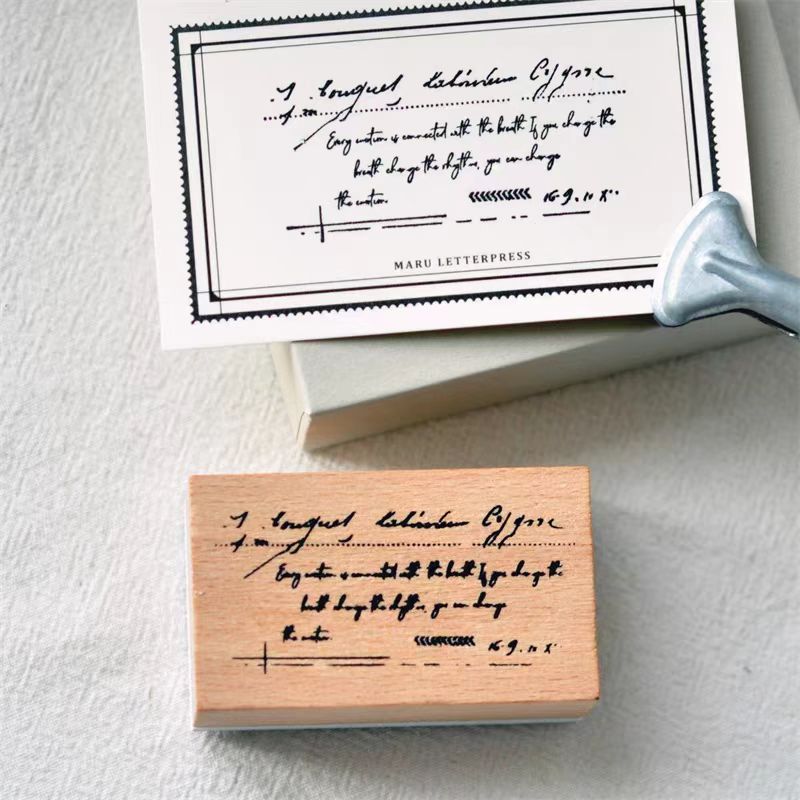 1 bouquet Cygne
Every emotion is connected with the breath If you change the
breath change the rhythm, you can change
the emotion.
16.9.10
MARU LETTERPRESS
1 bouquet Cygne
Every emotion is connected with the breath If you change the
breath change the rhythm, you can change
the emotion.
16.9.10